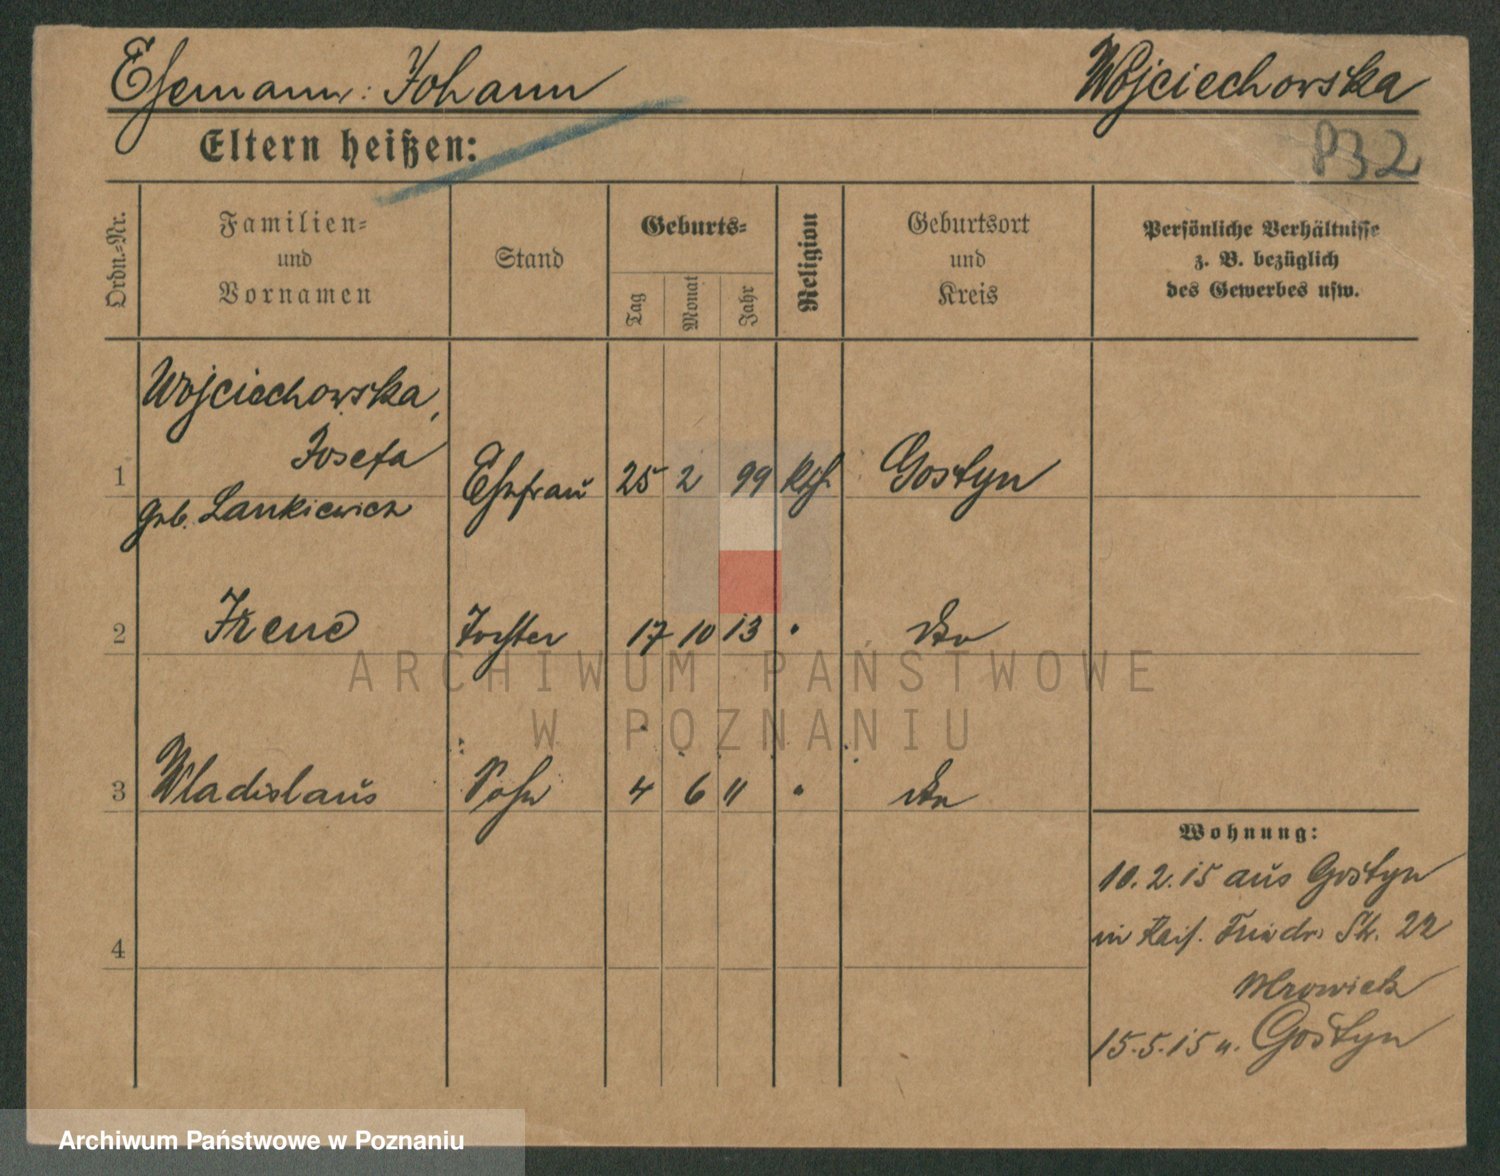 Ehemann: Johann
Wojciechowska
Eltern heißen:
P32
Ordn.-Nr.
Familien-
und
Vornamen
Stand
Geburts-
Tag
Monat
Jahr
Religion
Geburtsort
und
Kreis
Persönliche Verhältnisse
z. B. bezüglich
des Gewerbes usw.
Wojciechowska,
Josefa
1 Ehefrau 25 2 99 kth. Gostyn
geb. Lankiewicz
2 Irene Tochter 17 10 13 "
3 Wladislaus Sohn 4 6 11 "
4
Wohnung:
10.2.15 aus Gostyn
in Kais. Friedr. Str. 22
Mrowick
15.5.15 n. Gostyn
ARCHIWUM PAŃSTWOWE
W POZNANIU
Archiwum Państwowe w Poznaniu